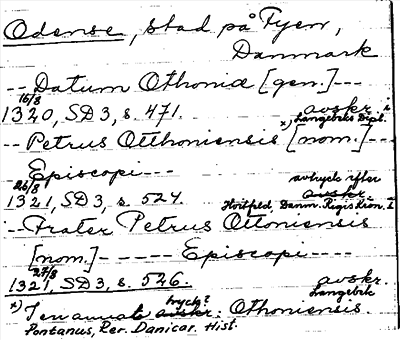 Odense, stad på Fyen,
Danmark
-- Datum Othoniæ [gen.] ---
16/8
1320, SD 3, s. 471. avskr. i
x) Langebeks Dipl.
-- Petrus Otthoniensis [nom.] --
Episcopi --- avtryck efter
26/8 avskr.
1321, SD 3, s. 524. Hvitfeld, Danm. Rigis Krøn. I
-- Frater Petrus Ottoniensis
[nom.] ----- Episcopi ----
27/8
1321, SD 3, s. 526. avskr.
Langebek
tryck?
x) I en annat avskr.: Othoniensis.
Pontanus, Rer. Danicar. Hist.